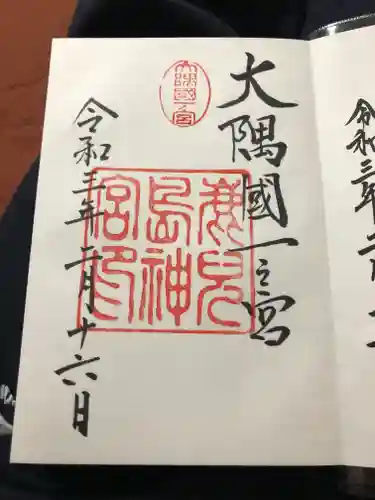 大隅國一宮
大隅國一之宮
鹿児
島神
宮印
令和三年二月十六日
令和三年二月